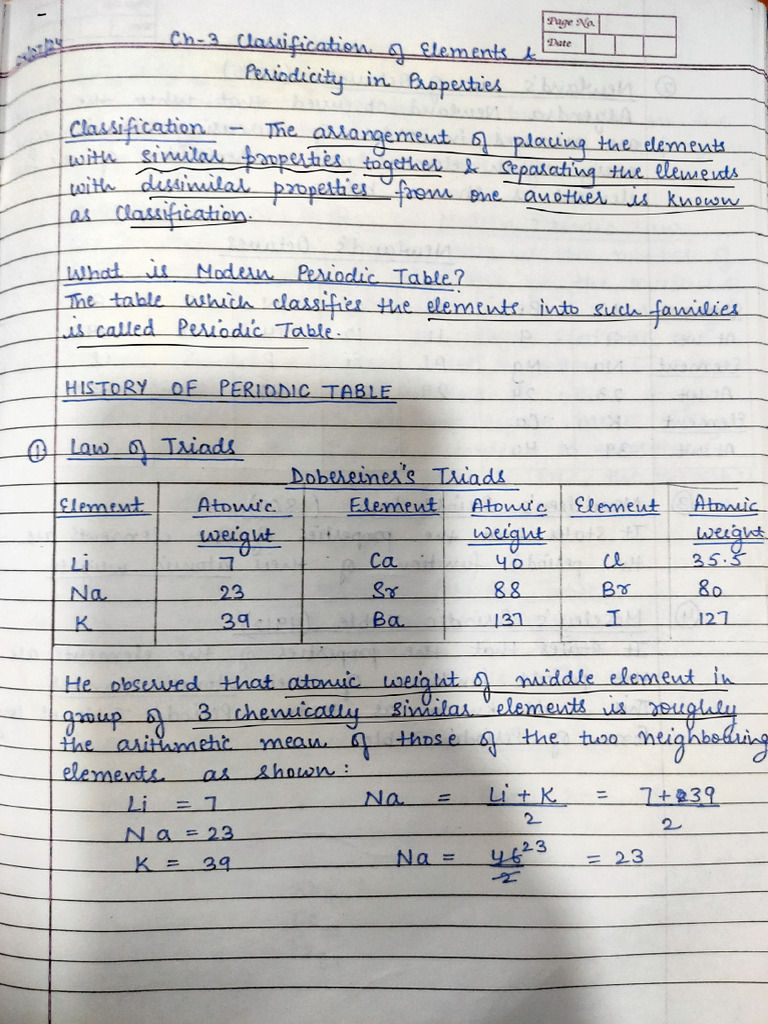 Page No.
Date
Ch-3 Classification of Elements &
Periodicity in Properties
Classification - The arrangement of placing the elements
with similar properties together & separating the elements
with dissimilar properties from one another is known
as Classification.
What is Modern Periodic Table?
The table which classifies the elements into such families
is called Periodic Table.
HISTORY OF PERIODIC TABLE
① Law of Triads
Dobereiner's Triads
Element Atomic Element Atomic Element Atomic
weight weight weight
Li 7 Ca 40 Cl 35.5
Na 23 Sr 88 Br 80
K 39 Ba 137 I 127
He observed that atomic weight of middle element in
group of 3 chemically similar elements is roughly
the arithmetic mean of those of the two neighbouring
elements as shown:
Li = 7 Na = Li + K = 7+39
2 2
Na = 23
K = 39 Na = 46 23 = 23
2